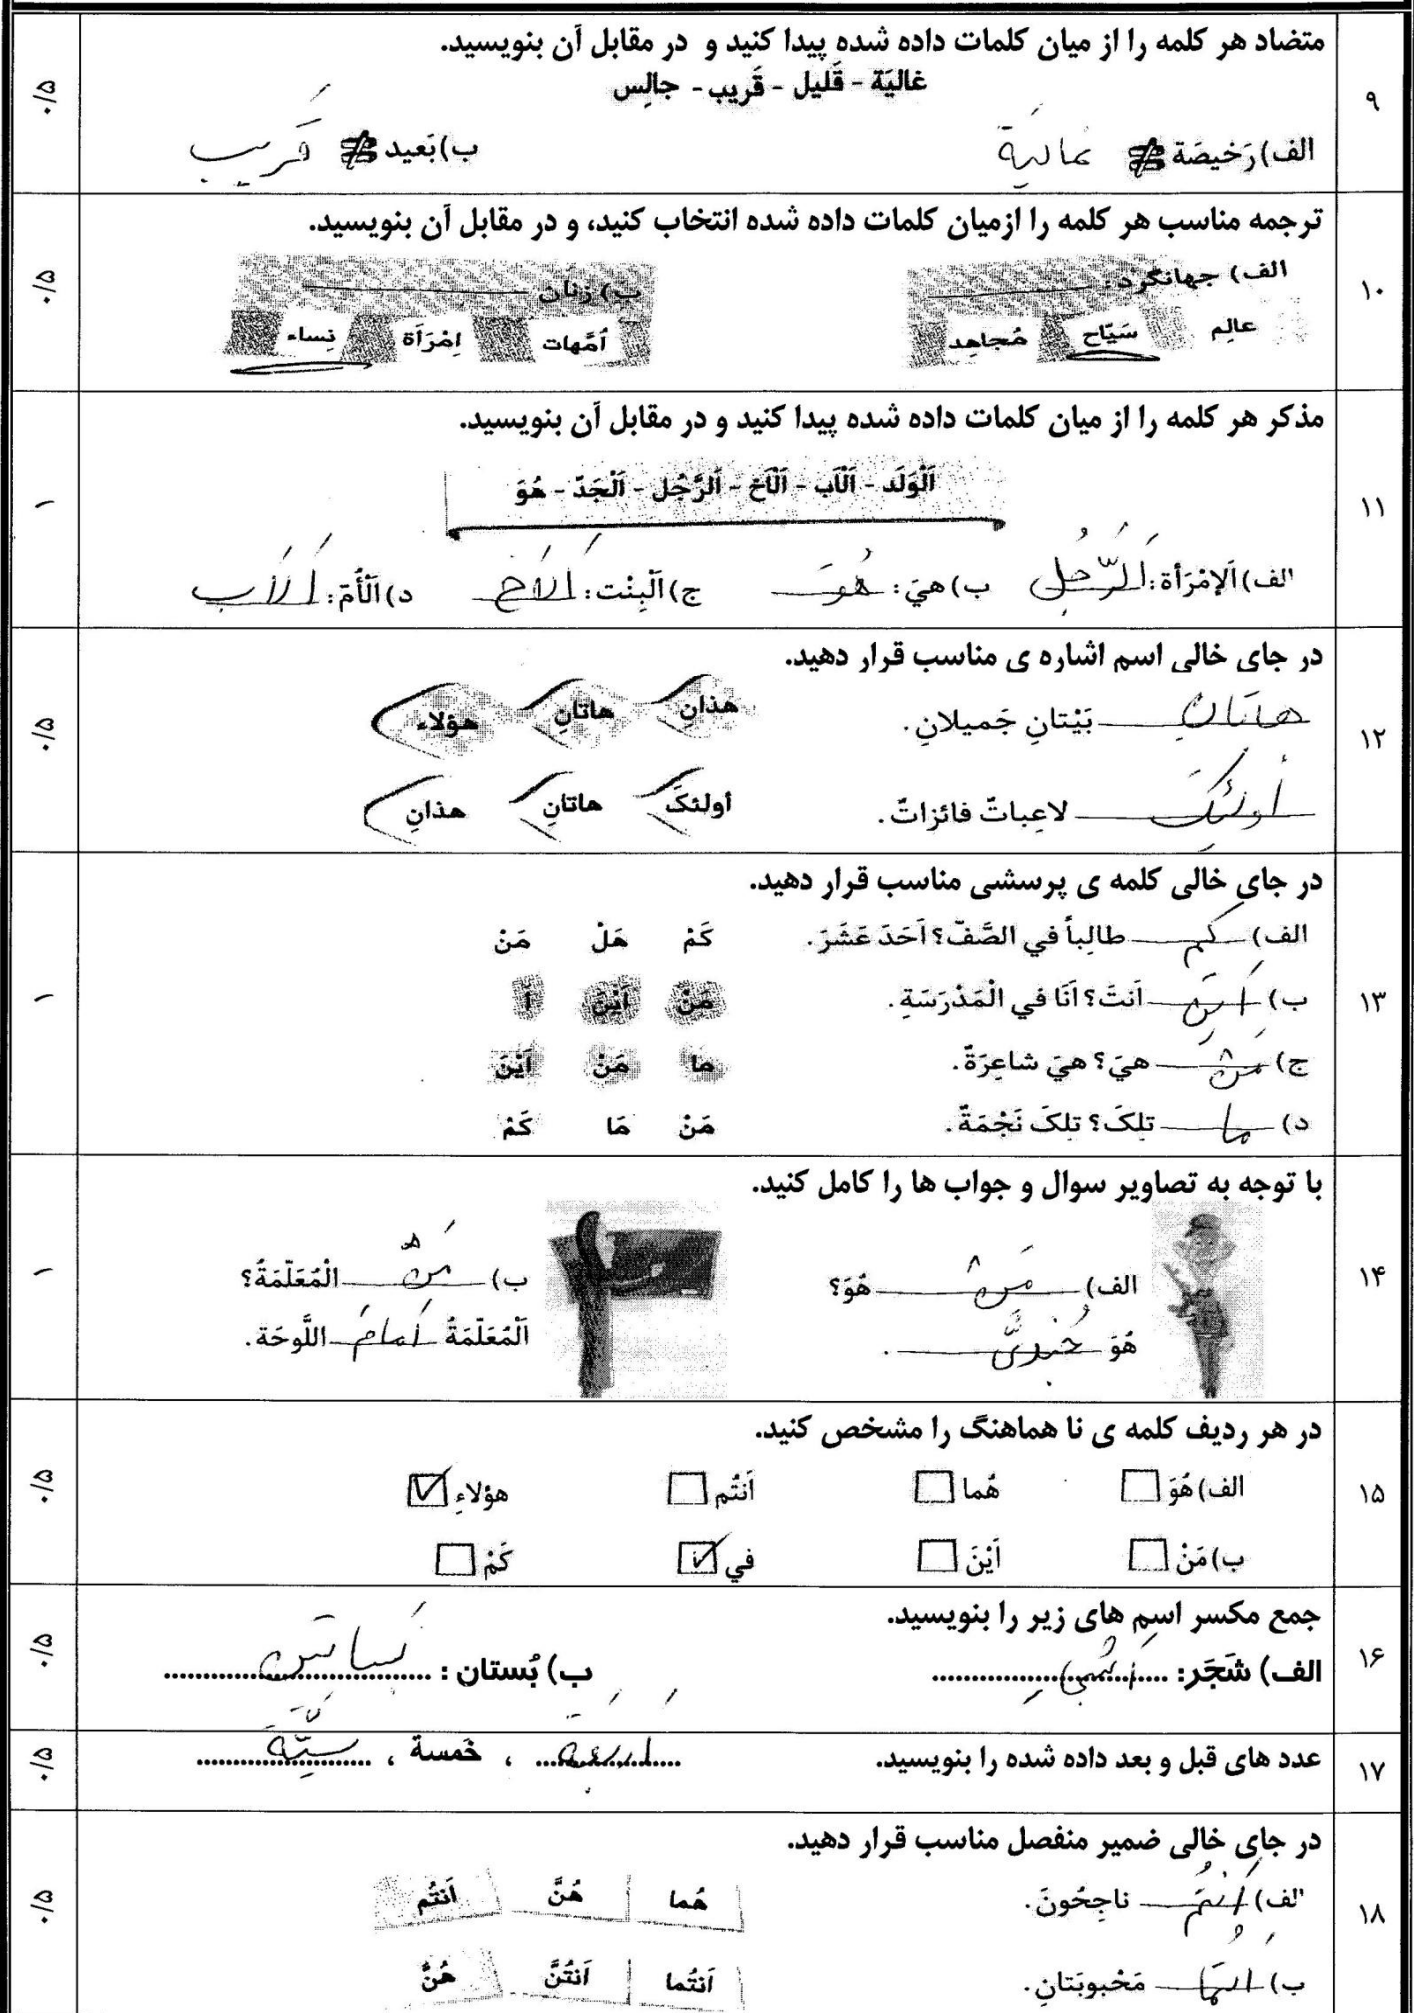 ۹ متضاد هر کلمه را از میان کلمات داده شده پیدا کنید و در مقابل آن بنویسید. ۰/۵
غالیَة - قَلیل - قَریب - جالِس
الف) رَخیصَة ≠ غالیَة ب) بَعید ≠ قَریب
۱۰ ترجمه مناسب هر کلمه را ازمیان کلمات داده شده انتخاب کنید، و در مقابل آن بنویسید. ۰/۵
الف) جهانگرد: ب) زنان
عالِم سَیّاح مُجاهِد اُمَّهات اِمْرَأَة نِساء
۱۱ مذکر هر کلمه را از میان کلمات داده شده پیدا کنید و در مقابل آن بنویسید. ۱
اَلْوَلَد - اَلْأَب - اَلْأَخ - اَلرَّجُل - اَلْجَدّ - هُوَ
الف) اَلإمْرَأة: اَلرَّجُل ب) هیَ: هُوَ ج) اَلْبِنْت: اَلاَخ د) اَلْأُمّ: اَلاَب
۱۲ در جای خالی اسم اشاره ی مناسب قرار دهید. ۰/۵
هاتانِ بَیْتانِ جَمیلانِ. هَذانِ هاتانِ هؤلاء
أولئکَ لاعِباتٌ فائزاتٌ. أولئکَ هاتانِ هذانِ
۱۳ در جای خالی کلمه ی پرسشی مناسب قرار دهید. ۱
الف) کَم طالِباً في الصَّفّ؟ اَحَدَ عَشَرَ. کَمْ هَلْ مَنْ
ب) اَینَ اَنتَ؟ اَنَا في الْمَدْرَسَةِ. مَنْ اَیْنَ اَ
ج) مَنْ هیَ؟ هیَ شاعِرَةٌ. ما مَنْ اَیْنَ
د) ما تلِکَ؟ تلِکَ نَجْمَةٌ. مَنْ مَا کَمْ
۱۴ با توجه به تصاویر سوال و جواب ها را کامل کنید. ۱
الف) مَنْ هُوَ؟ ب) مَنْ الْمُعَلّمَةُ؟
هُوَ جُندیٌّ. اَلْمُعَلّمَةُ اَمامَ اللَّوحَة.
۱۵ در هر ردیف کلمه ی نا هماهنگ را مشخص کنید. ۰/۵
الف) هُوَ هُما اَنتُم هؤلاءِ
ب) مَنْ اَیْنَ في کَمْ
۱۶ جمع مکسر اسم های زیر را بنویسید. ۰/۵
الف) شَجَر: ب) بُستان: بَساتین
۱۷ عدد های قبل و بعد داده شده را بنویسید. اَربَعَة ، خَمسة ، سِتَّة ۰/۵
۱۸ در جای خالی ضمیر منفصل مناسب قرار دهید. ۰/۵
الف) اَنتُم ناجِحُونَ. هُما هُنَّ اَنتُم
ب) اَنتُما مَحْبوبَتانِ. اَنتُما اَنتُنَّ هُنَّ